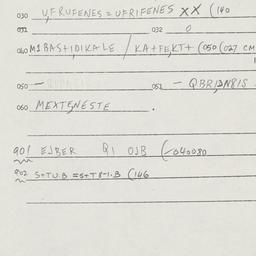 030 UFRUFENES = UFRIFENES XX (140
031 032 0
040 M1BASTIDIKALE / KA+FEKT+ (050 (027 CM
050 — 051 — QBRI2N81S
060 MEXTGNESTE .
901 EJBER Q1 OJB (-040080
902 S+TU.B =S+T8-1.B (146